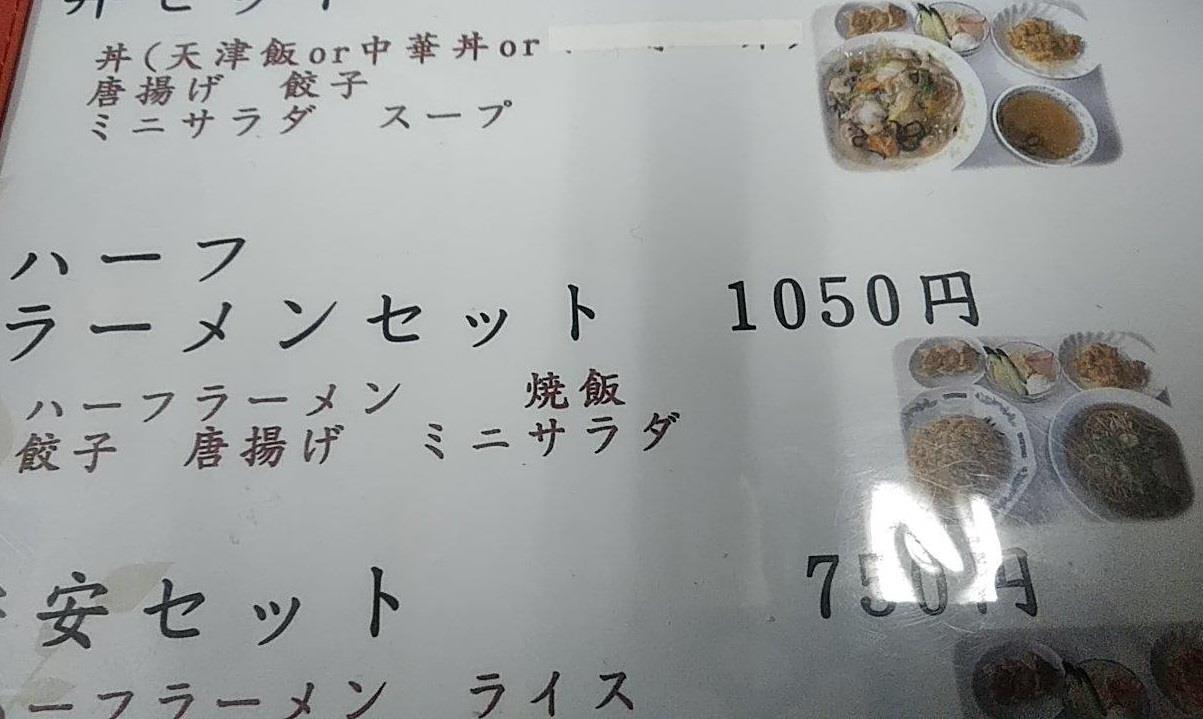 丼セット
丼(天津飯or中華丼or
唐揚げ 餃子
ミニサラダ スープ
ハーフ
ラーメンセット 1050円
ハーフラーメン 焼飯
餃子 唐揚げ ミニサラダ
安セット 750円
ーフラーメン ライス